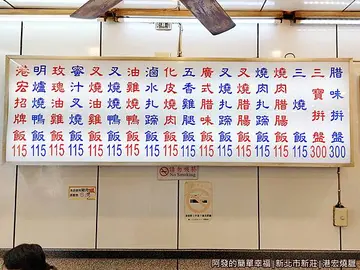 港宏招牌飯 115
明爐燒鴨飯 115
玫瑰油雞飯 115
蜜汁叉燒飯 115
叉燒油雞飯 115
叉燒燒鴨飯 115
油雞燒鴨飯 115
滷水扎蹄飯 115
化皮燒肉飯 115
五香雞腿飯 115
廣式臘味飯 115
叉燒扎蹄飯 115
燒肉臘腸飯 115
燒肉臘腸飯 115
三燒飯 115
三寶拼盤 300
臘味拼盤 300
請勿吸菸
No Smoking
阿發的簡單幸福│新北市新莊│港宏燒臘